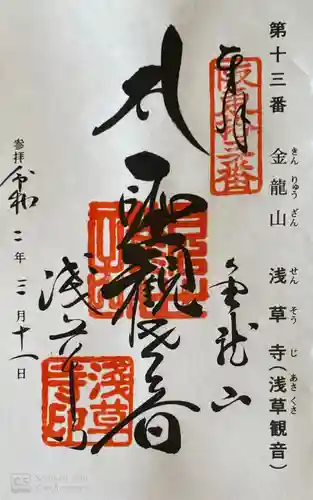 第十三番 金龍山 浅草寺(浅草観音)
きん りゅう ざん せん そう じ あさ くさ
奉拝
坂東十三番
聖観世音
金龍山
浅草寺
参拝 令和二年三月十一日
浅草寺印
CS